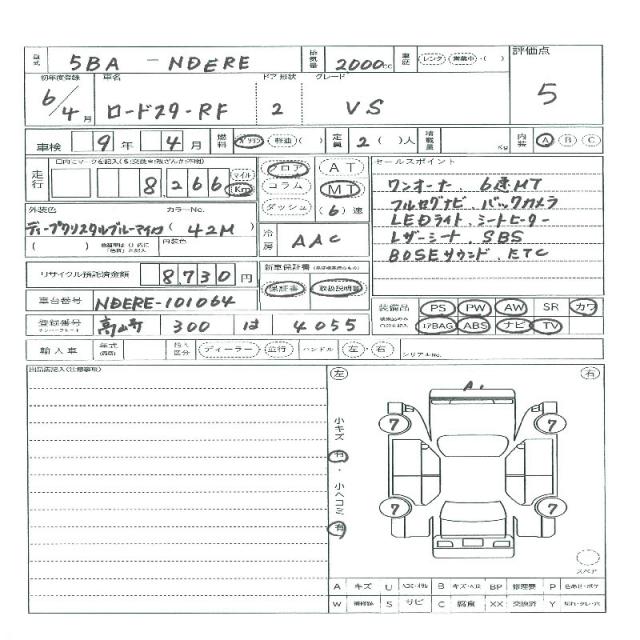 型式 5BA - NDERE 排気量 2000cc 車歴 レンタ・営業中・( ) 評価点
初年度登録 車名 ドア形状 グレード
6/4月 ロードスターRF 2 VS 5
車検 9年 4月 燃料 ガソリン・軽油( ) 定員 2( )人 積載量 Kg 内装 A B C
走行 8,266 マイル Km フロア コラム ダッシュ AT MT (6)速
セールスポイント
ワンオーナー、6速MT
フルセグナビ、バックカメラ
LEDライト、シートヒーター
レザーシート、SBS
BOSEサウンド、ETC
外装色 カラーNo.
ディープクリスタルブルーマイカ(42M)
( ) 内装色
冷房 AAC
リサイクル預託済金額 8,730円
新車保証書 保証書 取扱説明書
車台番号 NDERE-101064
装備品 PS PW AW SR カワ
登録番号 300 は 4055
エアBAG ABS ナビ TV
輸入車 年式 輸入区分 ディーラー・並行 ハンドル 左・右 シリアルNo.
出品店記入(注意事項)
左 右
小キズ 有・小ヘコミ 有
A
7 7
7 7
スペア
A キズ U B キズ・ヘコミ BP 修理要 P 色あせ・ボケ
W 補修跡 S サビ C 腐食 XX 交換済 Y 切れ・ワレ・穴